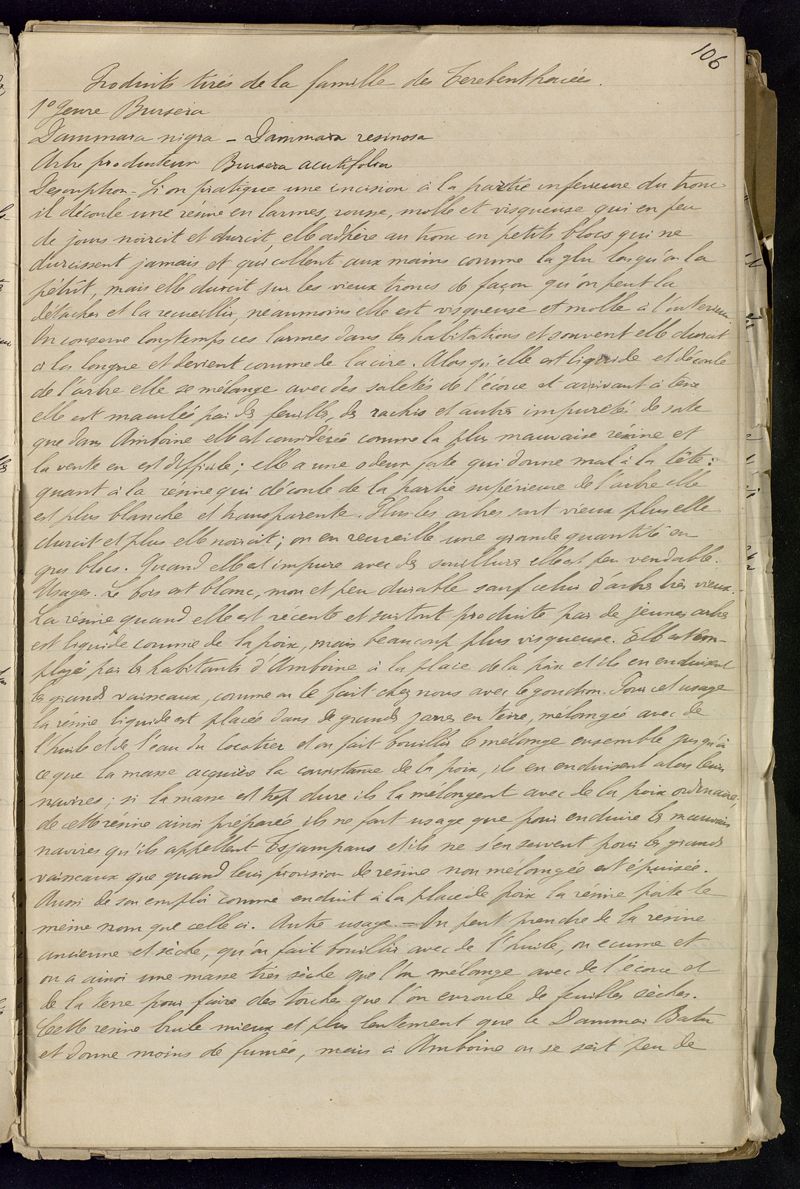 106
Produits tirés de la famille des Terebenthacées.
1º Genre Bursera
Dammara nigra – Dammara resinosa
Arbre producteur Bursera acutifolia
Description – Si on pratique une incision à la partie inferieure du tronc
il découle une résine en larmes, rousse, molle et visqueuse qui en peu
de jours noircit et durcit elle adhère au tronc en petits blocs qui ne
durcissent jamais et qui collent aux mains comme la glu lorsqu'on la
pétrit, mais elle durcit sur les vieux troncs de façon qu'on peut la
détacher et la recueillir, néaumoins elle est visqueuse et molle à l'interieur.
On conserve longtemps ces larmes dans les habitations et souvent elle durcit
à la longue et devient comme de la cire. Alors qu'elle est liquide et découle
de l'arbre elle se mélange avec des saletés de l'écorce et arrivant à terre
elle est maculée par des feuilles, des rachis et autres impuretés de sorte
que dans Amboine elle est considérée comme la plus mauvaise résine et
la vente en est difficile : elle a une odeur fate qui donne mal à la tête :
quant à la résine qui découle de la partie supérieure de l'arbre elle
est plus blanche et transparente. Plus les arbres sont vieux plus elle
durcit et plus elle noircit ; on en recueille une grande quantité en
gros blocs. Quand elle est impure avec des souillures elle est peu vendable.
Usages. Le bois est blanc, mou et peu durable sauf celui d'arbres très vieux.
La résine quand elle est récente et surtout produite par de jeunes arbres
est liquide comme de la poix, mais beaucoup plus visqueuse. Elle est em-
ployé par les habitants d'Amboine à la place de la poix et ils en enduisent
les grands vaisseaux, comme on le fait chez nous avec le goudron. Pour cet usage
la résine liquide est placée dans de grandes jarres en terre, mélangée avec de
l'huile et de l'eau du cocotier et on fait bouillir le mélange ensemble jusqu'à
ce que la masse acquière la consistance de la poix, ils en enduisent alors leurs
navires ; si la masse est trop dure ils la mélangent avec de la poix ordinaire ;
de cette résine ainsi préparée ils ne font usage que pour enduire les mauvais
navires qu'ils appellent Tsjampans et ils ne s'en servent pour les grands
vaisseaux que quand leur provision de résine non mélangée est épuisée.
Aussi de son emploi comme enduit à la place de poix la résine porte le
même nom que celle ci. Autre usage. – On peut prendre de la résine
ancienne et sèche, qu'on fait bouillir avec de l'huile, on écume et
on a ainsi une masse très sèche que l'on mélange avec de l'écorce et
de la terre pour faire des torches que l'on enroule de feuilles sèches.
Cette resine brule mieux et plus lentement que le Dammar Batu
et donne moins de fumée, mais à Amboine on se sert peu de